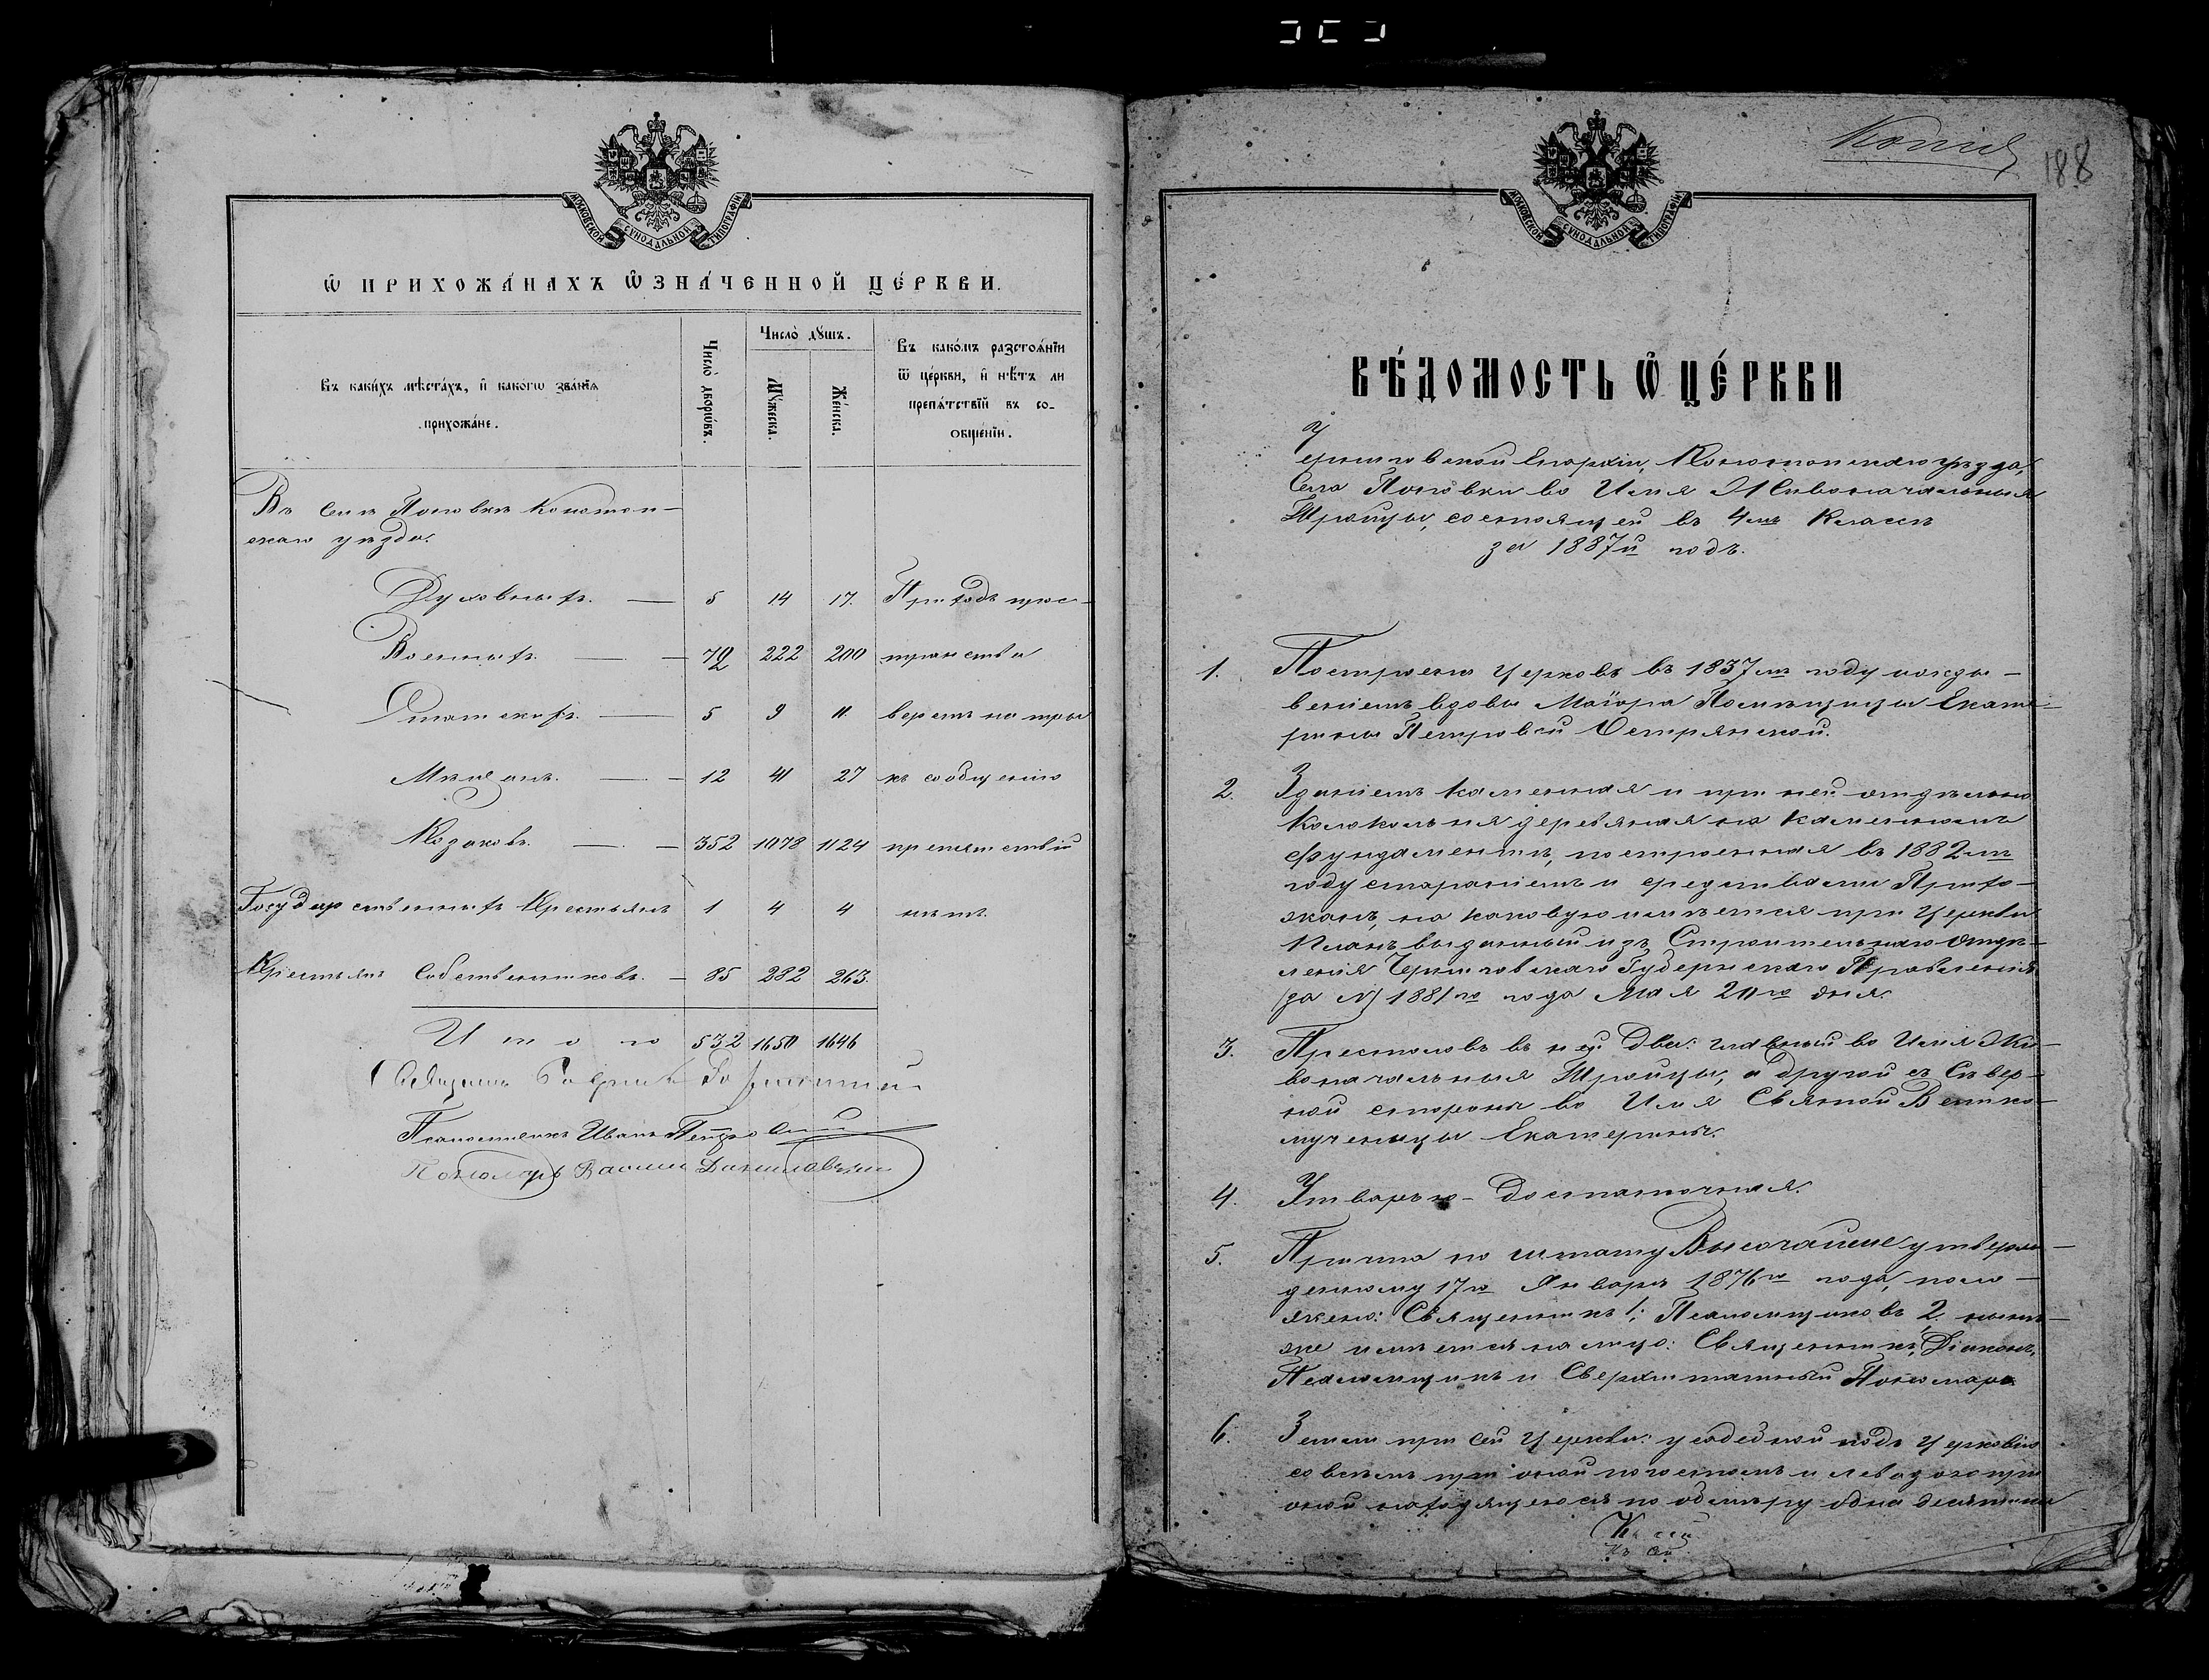 МОСКОВСКОЙ СѴНОДАЛЬНОЙ ТИПОГРАФІИ
Ѡ ПРИХОЖА́НАХЪ Ѡ҆ЗНА́ЧЕННОЙ ЦЕ́РКВИ.
Въ каки́хъ мѣста́хъ, и҆ какогѡ зва́нїѧ прихожа́не.
Число̀ дворѡ́въ.
Число̀ дꙋшъ.
Мꙋ́жеска.
Же́нска.
Въ како́мъ разстоѧ́нїи
ѿ це́ркви, и҆ нѣ́тъ ли
препѧ́тствїй въ со-
ѻбще́нїи.
Въ селѣ Поповкѣ Конотоп-
скаго уѣзда.
Духовныхъ. — 5 14 17. Приходъ прос-
Военныхъ. — 72 222 200 транствѣ
Статскихъ. — 5 9 11. верстъ на три
Мѣщанъ. — 12 41 27 къ сообщенію
Козаковъ. — 352 1078 1124 препятствій
Государственныхъ Крестьянъ 1 4 4 нѣтъ.
Крестьянъ Собственниковъ. — 85 282 263.
Итого 532 1650 1646
Священникъ
Псаломщикъ Иванъ Петровскій
Пономарь Василій Даниловскій
Копія
188
МОСКОВСКОЙ СѴНОДАЛЬНОЙ ТИПОГРАФІИ
ВѢ́ДОМОСТЬ Ѡ҆ ЦЕ́РКВИ
Черниговской Епархіи, Конотопскаго уѣзда,
Села Поповки во Имя Живоначальныя
Троицы, состоящей въ 4мъ Классѣ
за 1887й годъ.
1. Построена Церковь въ 1837мъ году ижди-
веніемъ вдовы Маіора Помѣщицы Екате-
рины Петровой Острянской.
2. Зданіемъ каменная и при ней отдѣльно
Колокольня деревяная на каменномъ
фундаментѣ, построенная въ 1882мъ
году стараніемъ и средствами Прихо-
жанъ, на каковую имѣется при Церкви
Планъ выданный изъ Строительнаго Отдѣ-
ленія Черниговскаго Губернскаго Правленія
за № 1881го года Мая 20го дня.
3. Престоловъ въ ней два: главный во Имя Жи-
воначальныя Троицы, а другой съ Сѣвер-
ной стороны во Имя Святой Велико-
мученицы Екатерины.
4. Утварью - достаточная.
5. Причта по штату Высочайше утверж-
денному 17го Января 1876го года, поло-
жено: Священникъ 1; Псаломщиковъ 2. нынѣ-
же имѣется на лицо: Священникъ, Діаконъ,
Псаломщикъ и Сверхштатный Пономарь
6. Земли при сей Церкви: усадебной подъ Церковію
со всѣмъ при оной погостомъ и левадою при
оной находящеюся по обмѣру одна десятина
Къ сей
Къ сей